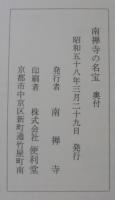 南禅寺の名宝 奥付
昭和五十八年三月二十九日 発行
発行者 南禅寺
印刷者 株式会社 便利堂
京都市中京区新町通竹屋町南